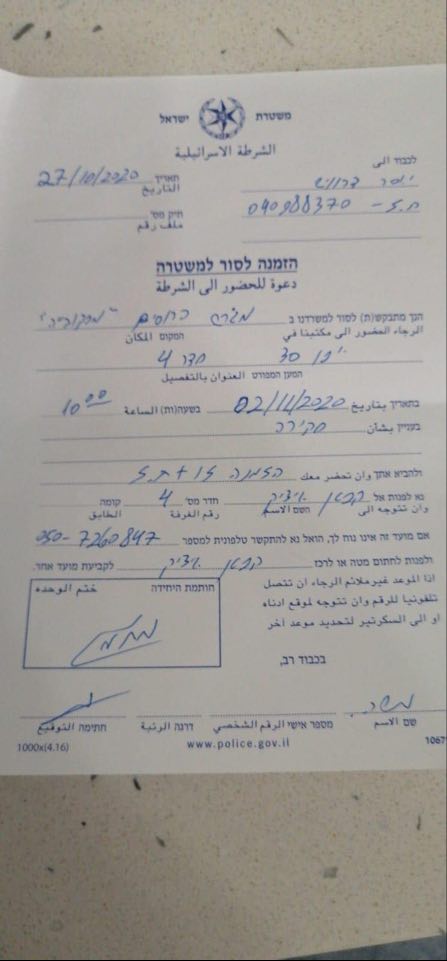 משטרת ישראל
الشرطة الاسرائيلية
לכבוד الى
תאריך التاريخ 27/10/2020
ת.ז - 040988370
תיק מס' ملف رقم
הזמנה לסור למשטרה
دعوة للحضور الى الشرطة
הנך מתבקש(ת) לסור למשרדנו ב מגרש הרוסים
الرجاء الحضور الى مكتبنا في המקום المكان
יפו 30 חדר 4
המען המפורט العنوان بالتفصيل
בתאריך بتاريخ 02/11/2020 בשעה(ות) الساعة 10:00
בעניין بشأن חקירה
ולהביא אתך وان تحضر معك הזמנה זו + ת.ז
נא לפנות אל קפטן איציק חדר מס' 4 קומה
وان تتوجه الى השם الاسم رقم الغرفة الطابق
אם מועד זה אינו נוח לך, הואל נא להתקשר טלפונית למספר 050-7260847
ולפנות לחתום מטה או לרכז קפטן איציק לקביעת מועד אחר.
اذا الموعد غير ملائم الرجاء ان تتصل
تلفونيا للرقم وان تتوجه لموقع ادناه
او الى السكرتير لتحديد موعد اخر
חותמת היחידה ختم الوحده
בכבוד רב,
שם الاسم מספר אישי الرقم الشخصي דרגה الرتبة חתימה التوقيع
1000x(4.16) www.police.gov.il 1067